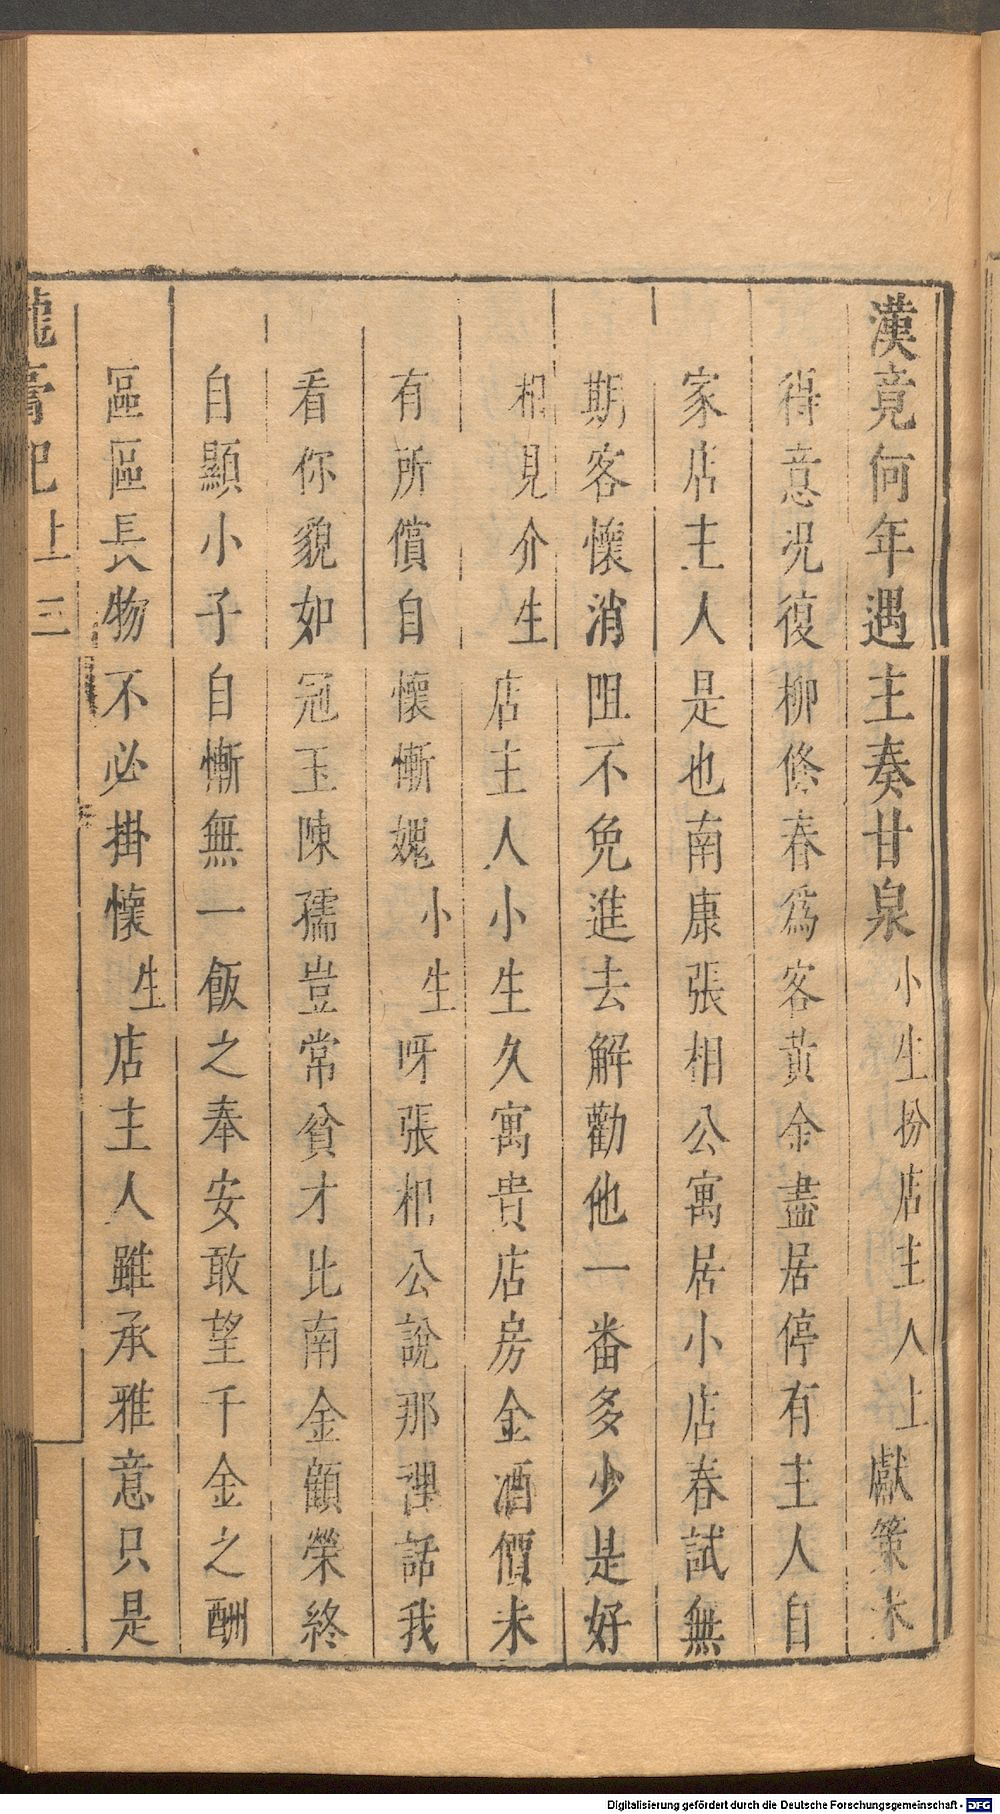 漢竟何年遇主奏甘泉小生扮店主人上獻策未
得意況復柳條春為客黃金盡居停有主人自
家店主人是也南康張相公寓居小店春試無
期客懷消阻不免進去解勸他一番多少是好
相見介生店主人小生久寓貴店房金酒價未
有所償自懷慚媿小生呀張相公說那裡話我
看你貌如冠玉陳孺豈常貧才比南金顧榮終
自顯小子自慚無一飯之奉安敢望千金之酬
區區長物不必掛懷生店主人雖承雅意只是
龍膏記上 三
Digitalisierung gefördert durch die Deutsche Forschungsgemeinschaft - DFG